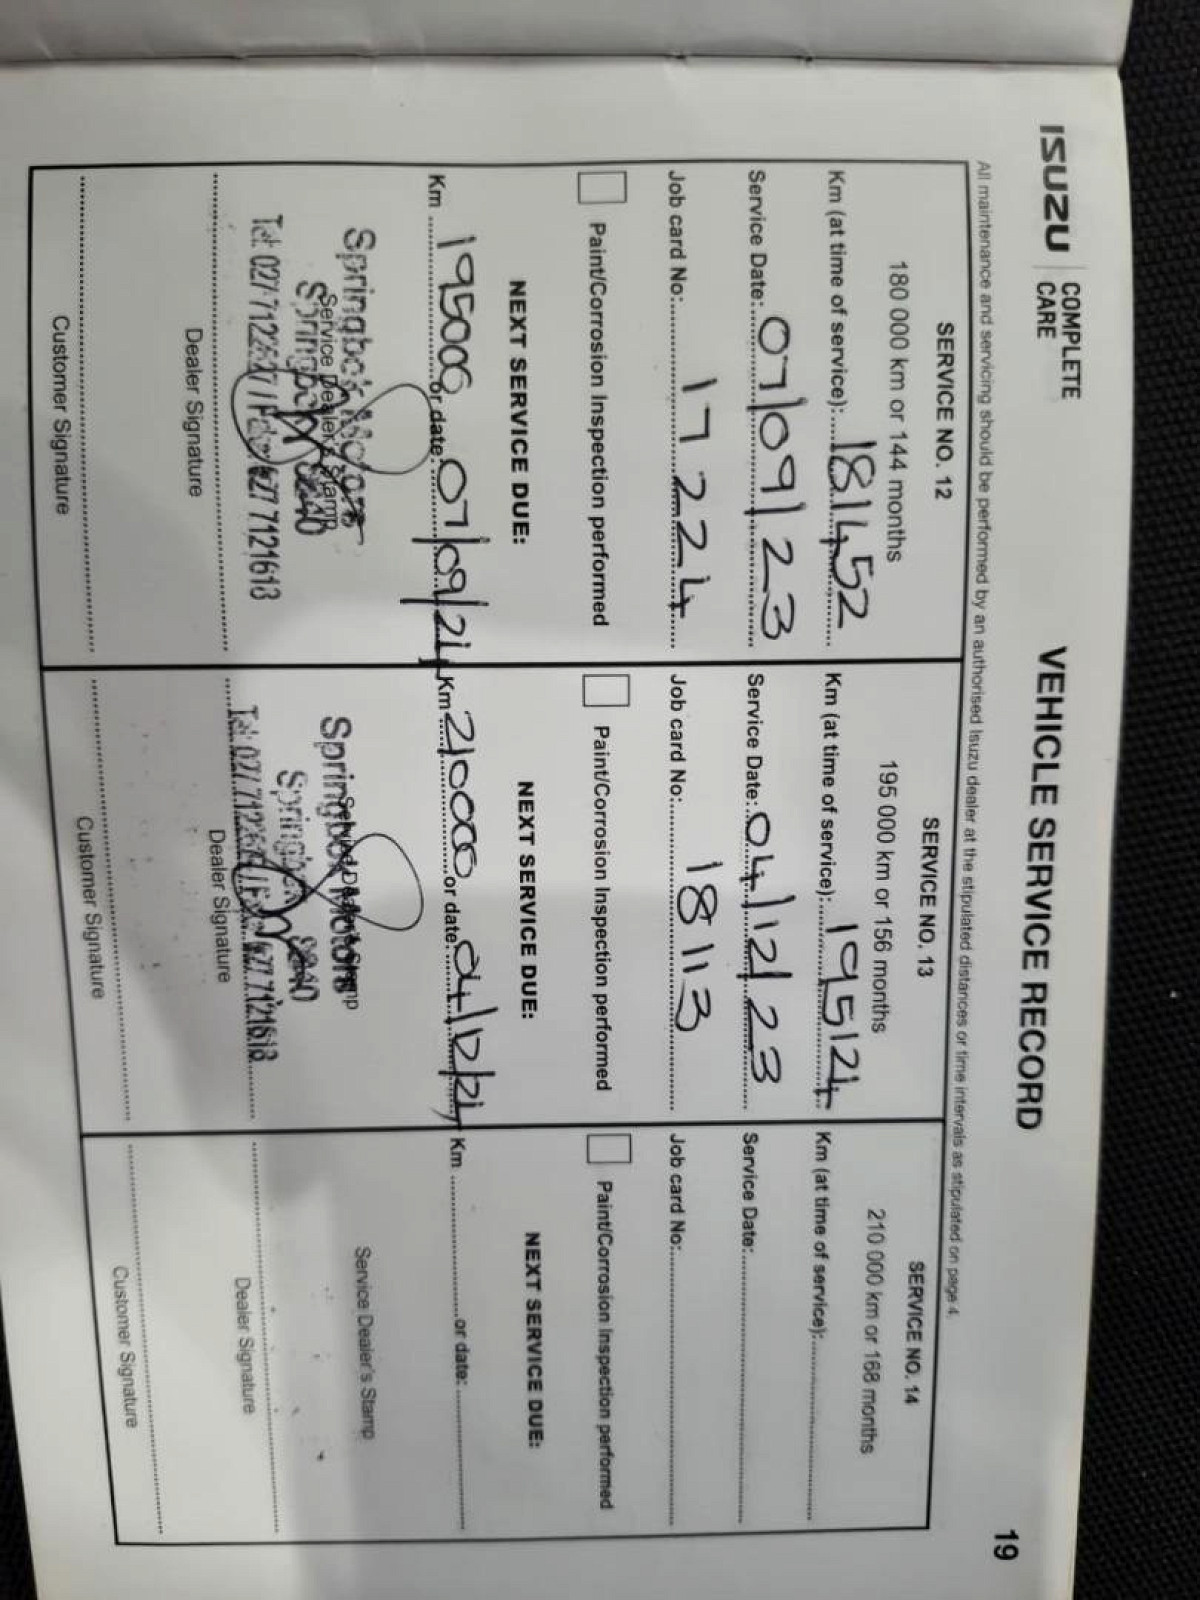 ISUZU COMPLETE CARE
VEHICLE SERVICE RECORD
19
All maintenance and servicing should be performed by an authorised Isuzu dealer at the stipulated distances or time intervals as stipulated on page 4.
SERVICE NO. 12
180 000 km or 144 months
Km (at time of service): 181452
Service Date: 07/09/23
Job card No: 17224
Paint/Corrosion Inspection performed
NEXT SERVICE DUE:
Km 195000 or date: 07/09/24
Springbok Motors
Service Dealer's Stamp
Springbok 8240
Tel: 027 7122627 / Fax: 027 7121613
Dealer Signature
Customer Signature
SERVICE NO. 13
195 000 km or 156 months
Km (at time of service): 195124
Service Date: 04/12/23
Job card No: 18113
Paint/Corrosion Inspection performed
NEXT SERVICE DUE:
Km 210000 or date: 04/12/24
Springbok Motors
Service Dealer's Stamp
Springbok 8240
Dealer Signature
Customer Signature
SERVICE NO. 14
210 000 km or 168 months
Km (at time of service):
Service Date:
Job card No:
Paint/Corrosion Inspection performed
NEXT SERVICE DUE:
Km or date:
Service Dealer's Stamp
Dealer Signature
Customer Signature